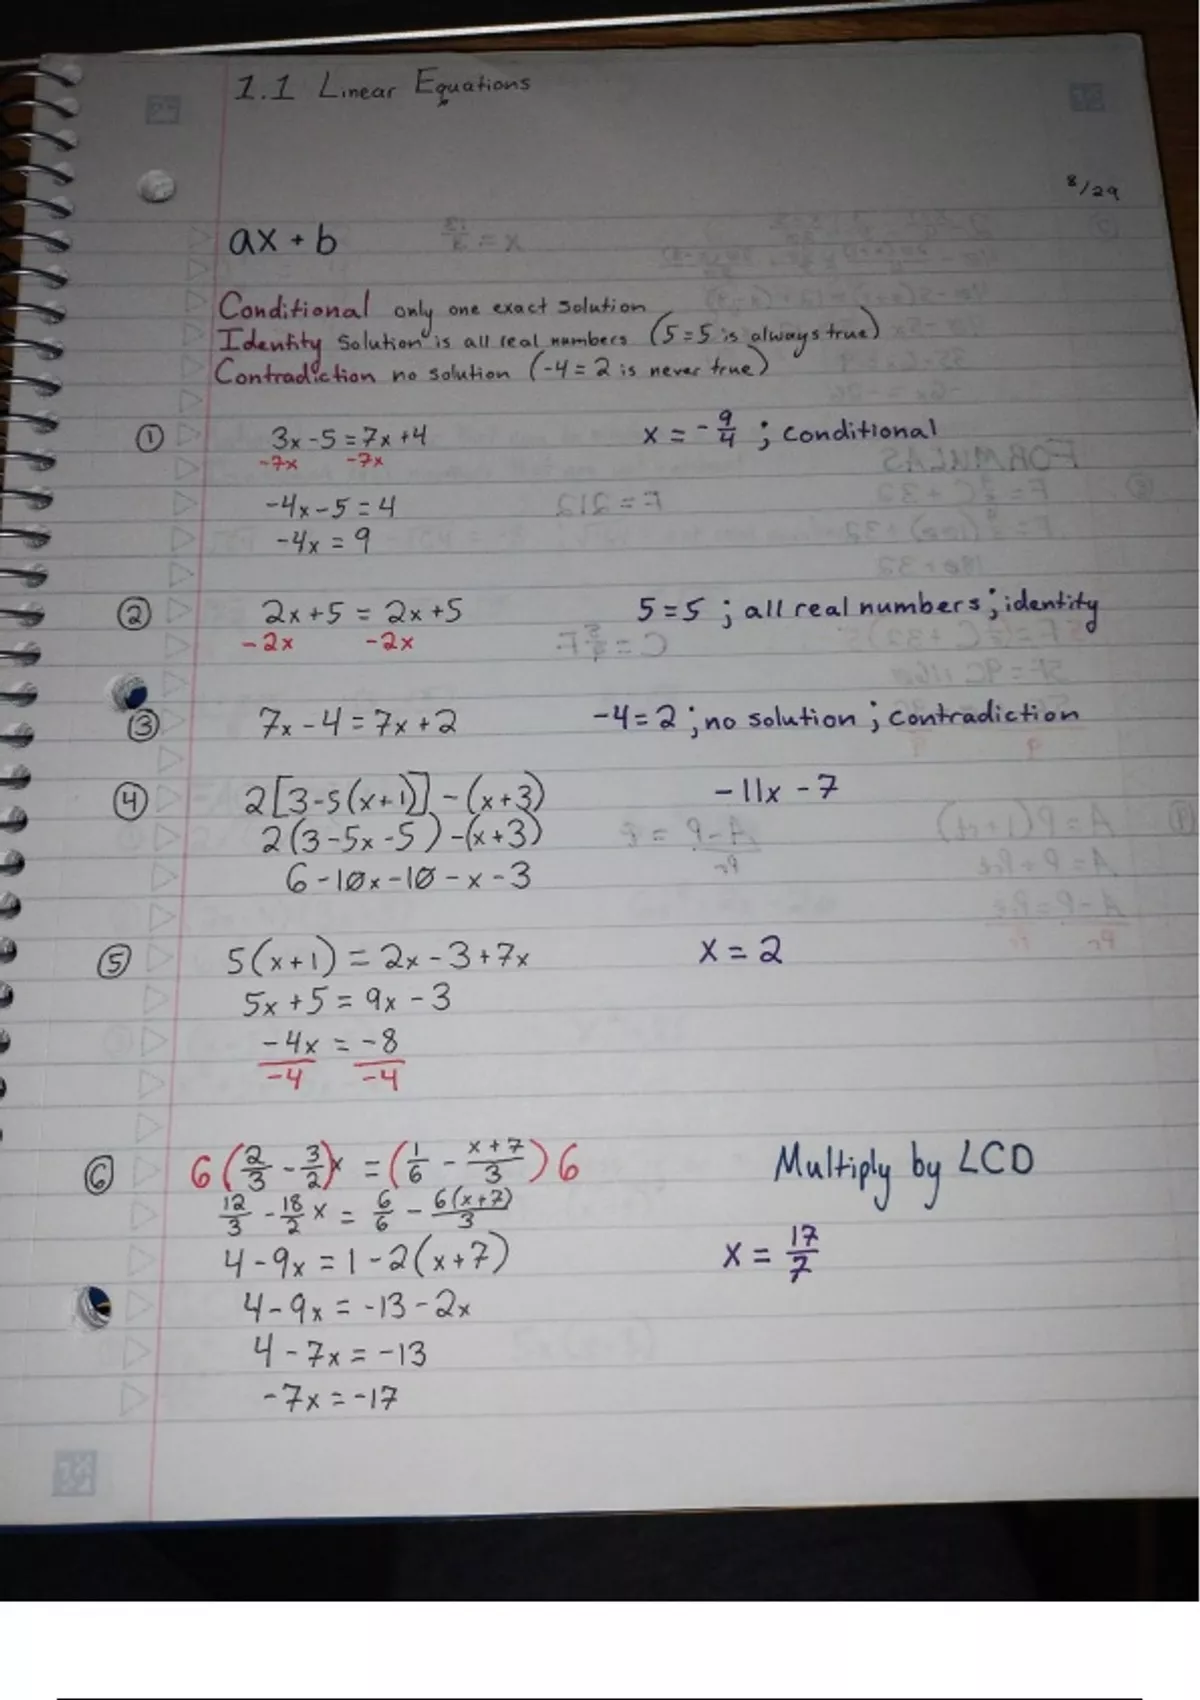 1.1 Linear Equations
8/29
ax + b
Conditional only one exact solution
Identity solution is all real numbers (5=5 is always true)
Contradiction no solution (-4=2 is never true)
① 3x-5=7x+4 x = -9/4 ; conditional
-7x -7x
-4x-5=4
-4x=9
② 2x+5 = 2x+5 5=5 ; all real numbers ; identity
-2x -2x
③ 7x-4=7x+2 -4=2 ; no solution ; contradiction
④ 2[3-5(x+1)]-(x+3) -11x-7
2(3-5x-5)-(x+3)
6-10x-10-x-3
⑤ 5(x+1) = 2x-3+7x x = 2
5x+5 = 9x-3
-4x = -8
-4 -4
⑥ 6(2/3 - 3/2)x = (1/6 - x+7/3)6 Multiply by LCD
12/3 - 18/2 x = 6/6 - 6(x+7)/3
4-9x = 1-2(x+7) x = 17/7
4-9x = -13-2x
4-7x = -13
-7x = -17